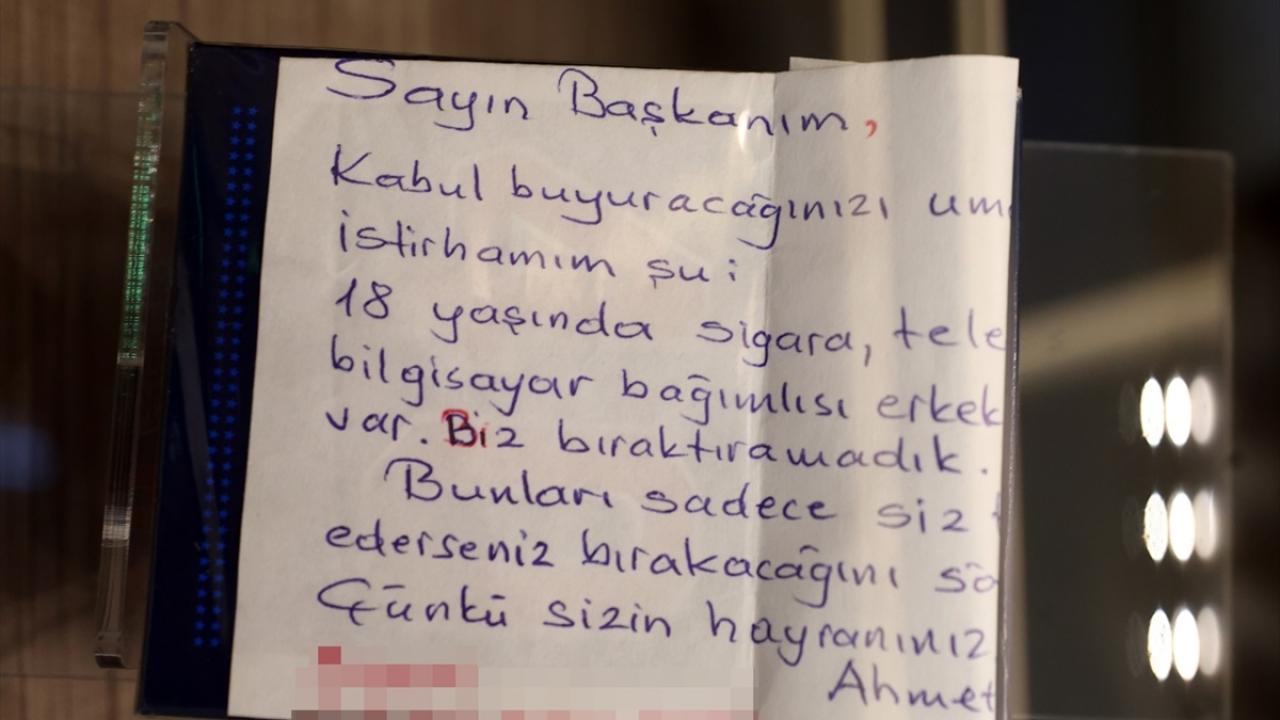 Sayın Başkanım,
Kabul buyuracağınızı um
istirhamım şu:
18 yaşında sigara, tele
bilgisayar bağımlısı erkek
var. Biz bıraktıramadık.
Bunları sadece siz
ederseniz bırakacağını sö
Çünkü sizin hayranınız
Ahmet